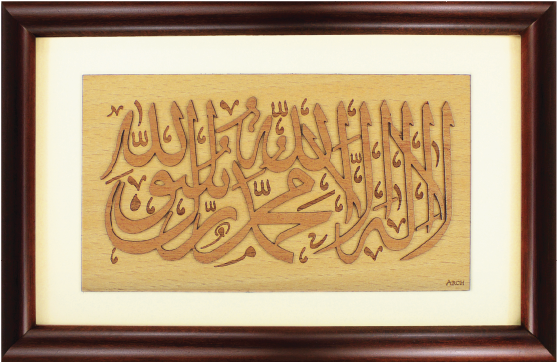 لا إله إلا الله محمد رسول الله
Arch